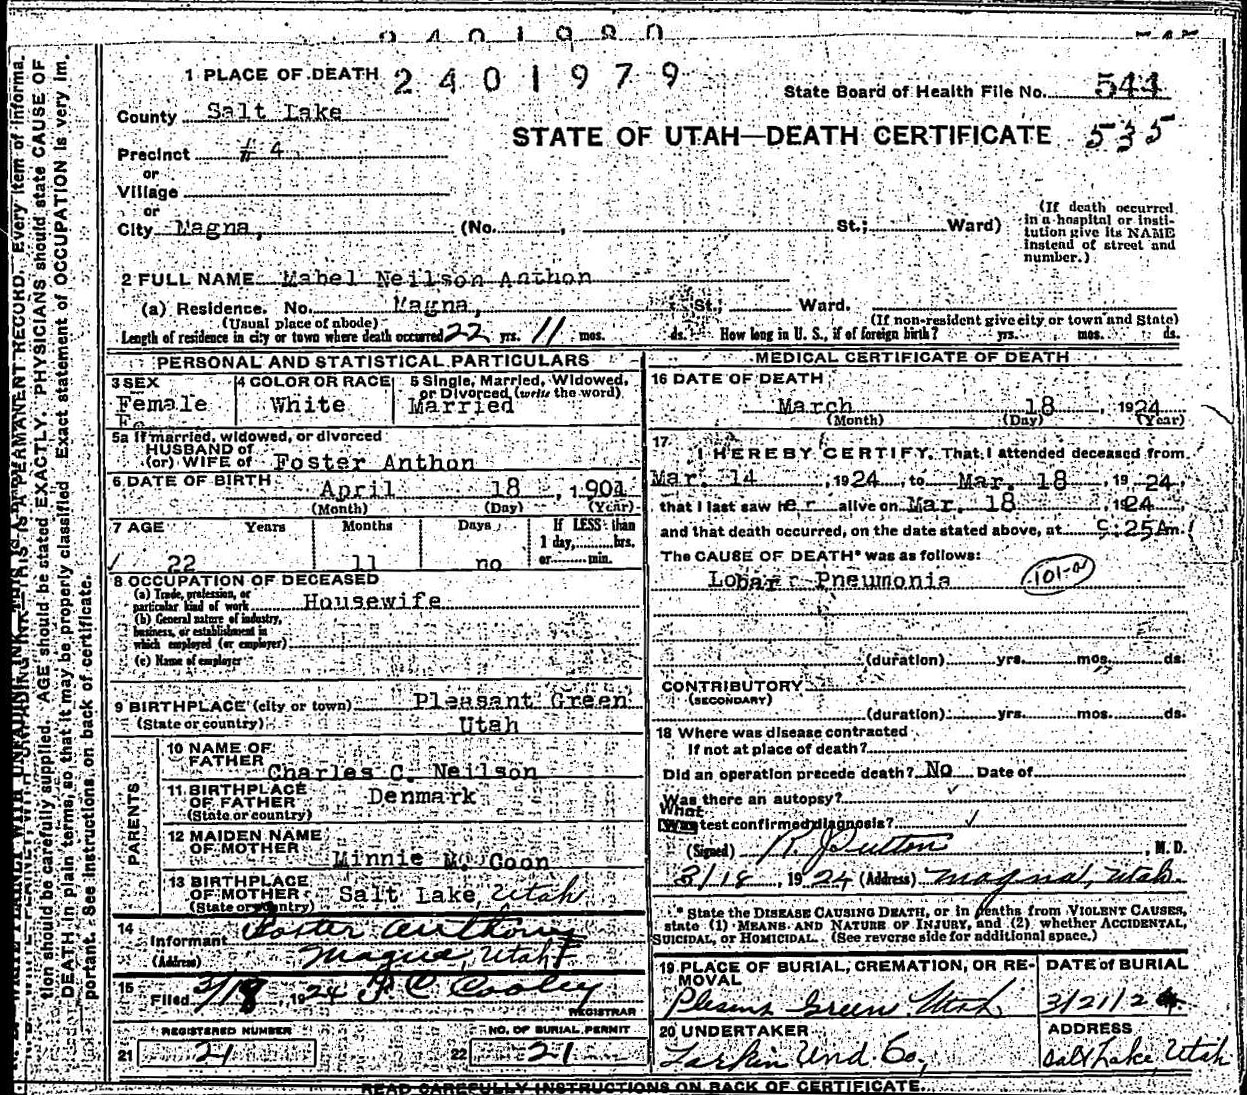 2401980
1 PLACE OF DEATH 2401979
State Board of Health File No. 544
County Salt Lake
STATE OF UTAH—DEATH CERTIFICATE 535
Precinct # 4
or
Village
or
City Magna, (No. , St.; Ward)
(If death occurred
in a hospital or insti-
tution give its NAME
instead of street and
number.)
2 FULL NAME Mabel Neilson Anthon
(a) Residence. No. Magna, St.; Ward.
(Usual place of abode) (If non-resident give city or town and State)
Length of residence in city or town where death occurred 22 yrs. 11 mos. ds. How long in U. S., if of foreign birth? yrs. mos. ds.
PERSONAL AND STATISTICAL PARTICULARS
3 SEX
Female
4 COLOR OR RACE
White
5 Single, Married, Widowed,
or Divorced (write the word)
Married
5a If married, widowed, or divorced
HUSBAND of
(or) WIFE of Foster Anthon
6 DATE OF BIRTH April 18 , 1901
(Month) (Day) (Year)
7 AGE Years Months Days If LESS than
1 day, hrs.
22 11 no or min.
8 OCCUPATION OF DECEASED
(a) Trade, profession, or
particular kind of work Housewife
(b) General nature of industry,
business, or establishment in
which employed (or employer)
(c) Name of employer
9 BIRTHPLACE (city or town) Pleasant Green
(State or country) Utah
PARENTS
10 NAME OF
FATHER Charles C. Neilson
11 BIRTHPLACE
OF FATHER Denmark
(State or country)
12 MAIDEN NAME
OF MOTHER Minnie Mc Coon
13 BIRTHPLACE
OF MOTHER Salt Lake, Utah
(State or country)
14
Informant Foster Anthony
(Address) Magna, Utah
15
Filed 3/18, 1924 F C Cooley
REGISTRAR
REGISTERED NUMBER NO. OF BURIAL PERMIT
21 21 22 21
MEDICAL CERTIFICATE OF DEATH
16 DATE OF DEATH
March 18 , 1924
(Month) (Day) (Year)
17
I HEREBY CERTIFY, That I attended deceased from
Mar. 14 , 1924, to Mar. 18 , 1924,
that I last saw her alive on Mar. 18 , 1924
and that death occurred, on the date stated above, at 9:25A m.
The CAUSE OF DEATH* was as follows:
Lobar Pneumonia 101-a
(duration) yrs. mos. ds.
CONTRIBUTORY
(SECONDARY)
(duration) yrs. mos. ds.
18 Where was disease contracted
If not at place of death?
Did an operation precede death? No Date of
Was there an autopsy?
What
Was test confirmed diagnosis?
(Signed) R. J. Sutton , M. D.
3/18 , 1924 (Address) Magna, Utah.
* State the DISEASE CAUSING DEATH, or in deaths from VIOLENT CAUSES,
state (1) MEANS AND NATURE OF INJURY, and (2) whether ACCIDENTAL,
SUICIDAL, or HOMICIDAL. (See reverse side for additional space.)
19 PLACE OF BURIAL, CREMATION, OR RE-
MOVAL
Plesant Green Utah
DATE of BURIAL
3/21/24
20 UNDERTAKER
Larkin Und Co,
ADDRESS
Salt Lake, Utah
READ CAREFULLY INSTRUCTIONS ON BACK OF CERTIFICATE.
THIS IS A PERMANENT RECORD. Every item of informa-
tion should be carefully supplied. AGE should be stated EXACTLY. PHYSICIANS should state CAUSE OF
DEATH in plain terms, so that it may be properly classified. Exact statement of OCCUPATION is very im-
portant. See instructions on back of certificate.